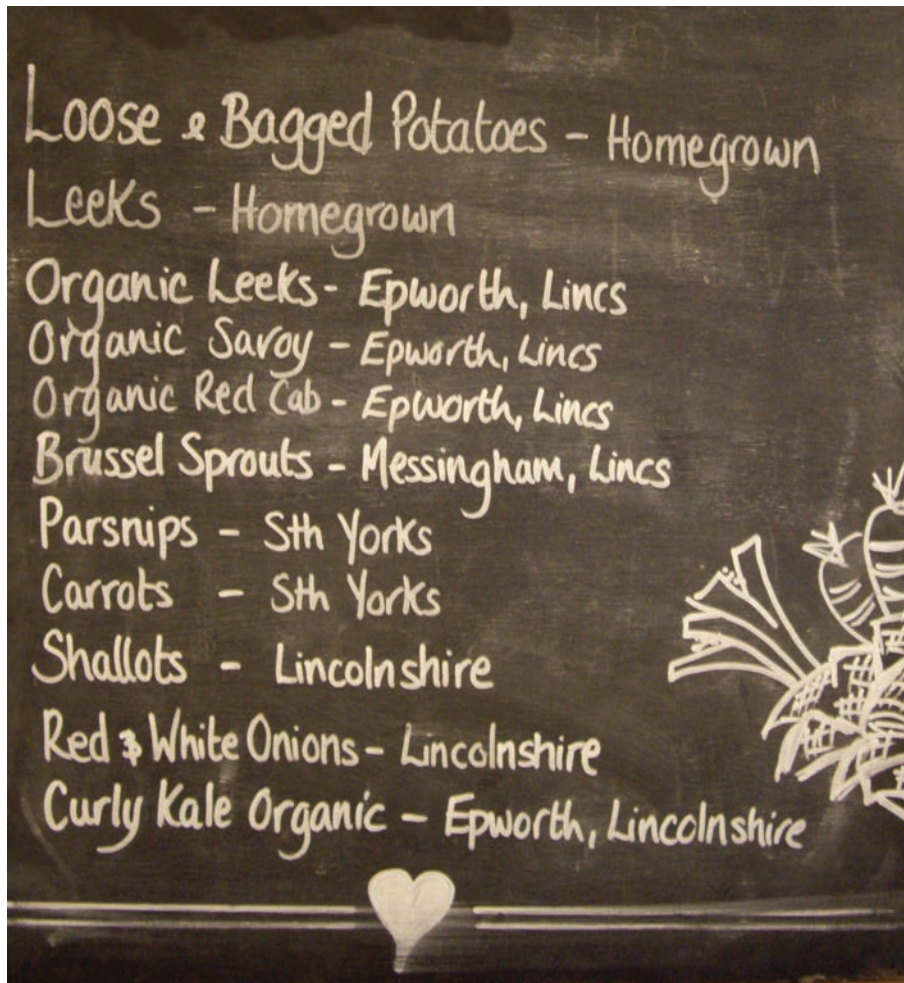 Loose & Bagged Potatoes - Homegrown
Leeks - Homegrown
Organic Leeks - Epworth, Lincs
Organic Savoy - Epworth, Lincs
Organic Red Cab - Epworth, Lincs
Brussel Sprouts - Messingham, Lincs
Parsnips - Sth Yorks
Carrots - Sth Yorks
Shallots - Lincolnshire
Red & White Onions - Lincolnshire
Curly Kale Organic - Epworth, Lincolnshire